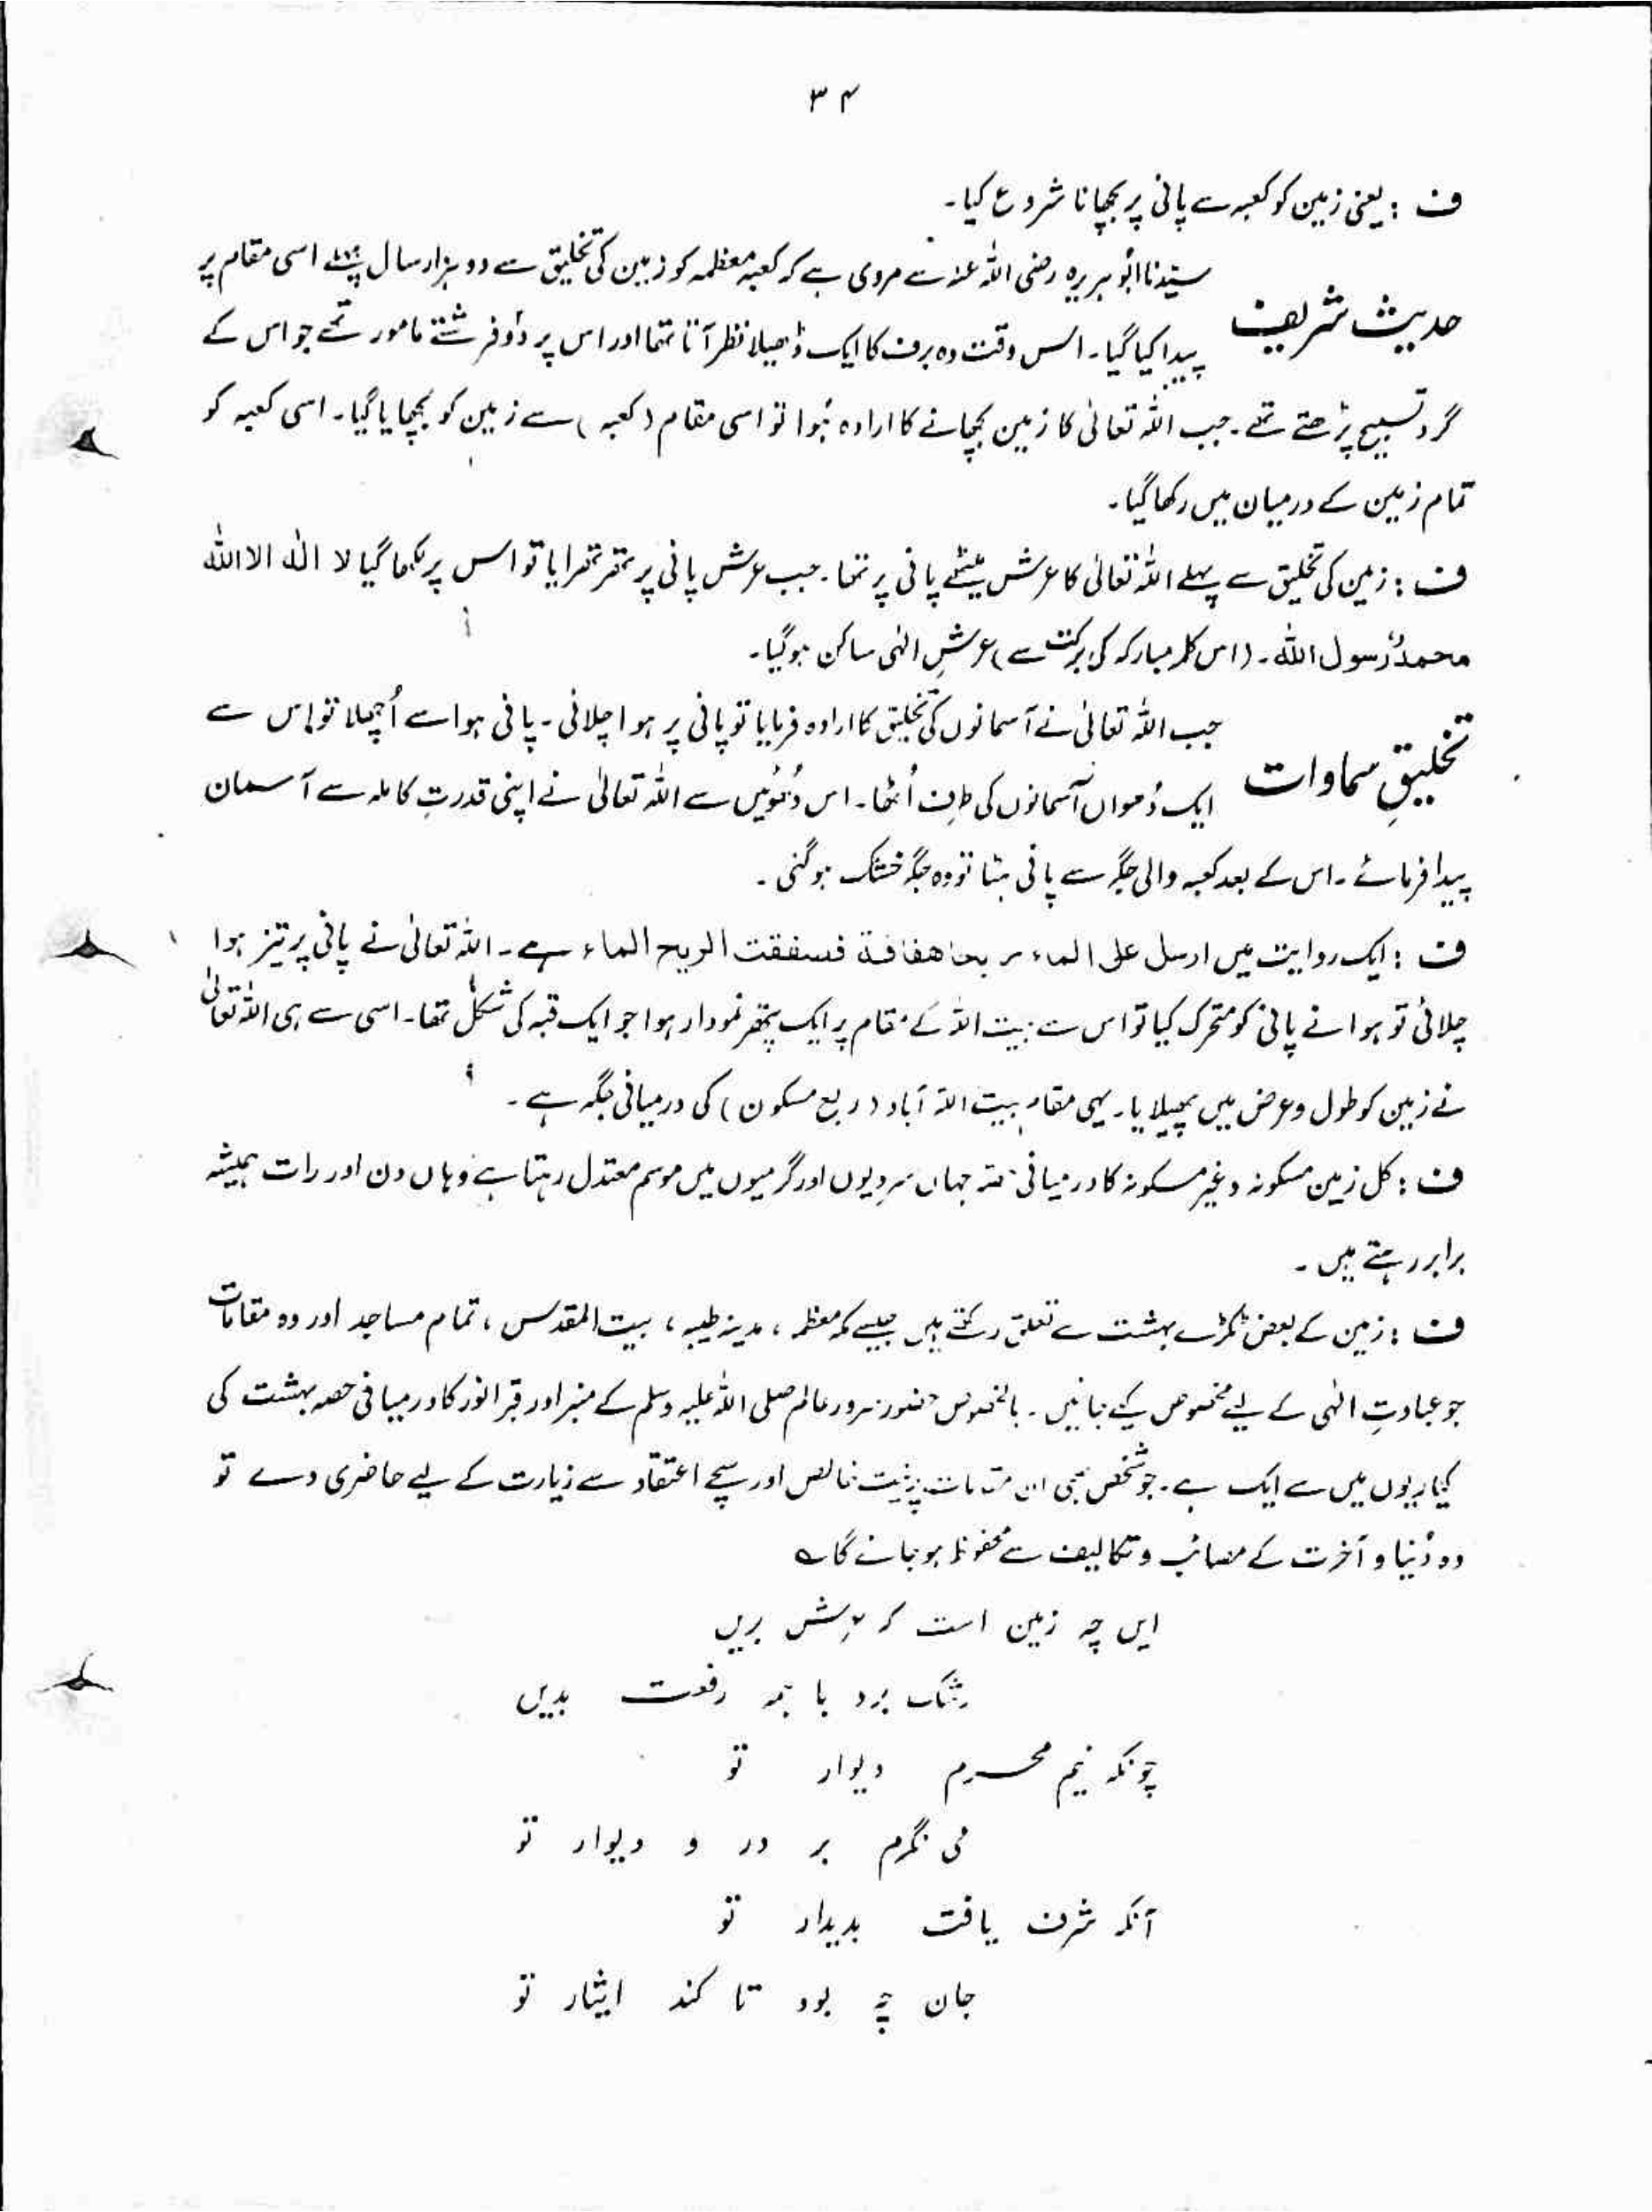 ۳۴
ف : یعنی زمین کو کعبہ سے پانی پر بچھانا شروع کیا۔
حدیث شریف
سیّدنا ابُوہریرہ رضی اللہ عنہ سے مروی ہے کہ کعبہ معظمہ کو زمین کی تخلیق سے دو ہزار سال پہلے اسی مقام پر
پیدا کیا گیا۔ اس وقت وہ برف کا ایک ڈھیلا نظر آتا تھا اور اس پر دو فرشتے مامور تھے جو اس کے
گرد تسبیح پڑھتے تھے۔ جب اللہ تعالیٰ کا زمین بچھانے کا ارادہ ہُوا تو اسی مقام (کعبہ) سے زمین کو بچھایا گیا۔ اسی کعبہ کو
تمام زمین کے درمیان میں رکھا گیا۔
ف : زمین کی تخلیق سے پہلے اللہ تعالیٰ کا عرش میٹھے پانی پر تھا۔ جب عرش پانی پر تھرتھرایا تو اس پر لکھا گیا لا الٰہ الا اللہ
محمدٌ رسول اللہ۔ (اس کلمہ مبارکہ کی برکت سے) عرشِ الٰہی ساکن ہو گیا۔
تخلیقِ سماوات
جب اللہ تعالیٰ نے آسمانوں کی تخلیق کا ارادہ فرمایا تو پانی پر ہوا چلائی۔ پانی ہوا سے اُچھلا تو اس سے
ایک دُھواں آسمانوں کی طرف اُٹھا۔ اس دُھوئیں سے اللہ تعالیٰ نے اپنی قدرتِ کاملہ سے آسمان
پیدا فرمائے۔ اس کے بعد کعبہ والی جگہ سے پانی ہٹا تو وہ جگہ خشک ہو گئی۔
ف : ایک روایت میں ارسل علی الماء ریحا ھفافۃ فسفقت الریح الماء ہے۔ اللہ تعالیٰ نے پانی پر تیز ہوا
چلائی تو ہوا نے پانی کو متحرک کیا تو اس سے بیت اللہ کے مقام پر ایک پتھر نمودار ہوا جو ایک قبہ کی شکل تھا۔ اسی سے ہی اللہ تعالیٰ
نے زمین کو طول و عرض میں پھیلایا۔ یہی مقام بیت اللہ آباد (ربع مسکون) کی درمیانی جگہ ہے۔
ف : کل زمین مسکونہ و غیر مسکونہ کا درمیانی جہاں سردیوں اور گرمیوں میں موسم معتدل رہتا ہے وہاں دن اور رات ہمیشہ
برابر رہتے ہیں۔
ف : زمین کے بعض ٹکڑے بہشت سے تعلق رکھتے ہیں جیسے مکہ معظمہ ، مدینہ طیبہ ، بیت المقدس ، تمام مساجد اور وہ مقامات
جو عبادتِ الٰہی کے لیے مخصوص کیے جائیں۔ بالخصوص حضور سرور عالم صلی اللہ علیہ وسلم کے منبر اور قبر انور کا درمیانی حصہ بہشت کی
کیاریوں میں سے ایک ہے۔ جو شخص بھی ان مقامات پر نیت خالص اور سچے اعتقاد سے زیارت کے لیے حاضری دے تو
وہ دُنیا و آخرت کے مصائب و تکالیف سے محفوظ ہو جائے گا؎
ایں چہ زمین است کہ عرش بریں
رشک برد با ہمہ رفعت بدیں
چونکہ نیم محرم دیوار تو
می نگرم بر در و دیوار تو
آنکہ شرف یافت بدیدار تو
جان چہ بود تا کند ایثار تو